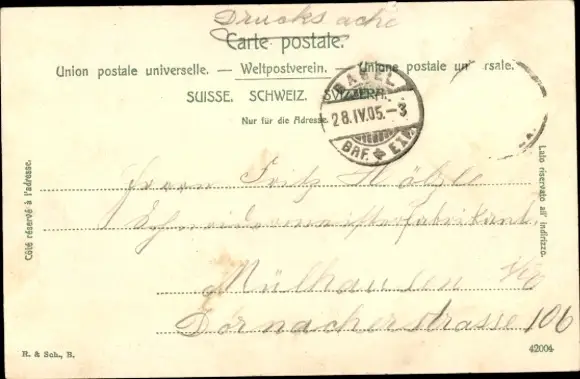 Drucksache
Carte postale.
Union postale universelle. — Weltpostverein. — Unione postale un rsale.
SUISSE. SCHWEIZ. SVIZZERA.
Nur für die Adresse.
BASEL
28.IV.05.-3
BRF. EXP.
Côté réservé à l'adresse.
Lato riservato all' indirizzo.
Herrn Fritz
Mülhausen
Dornacherstrasse 106
R. & Sch., B.
42004